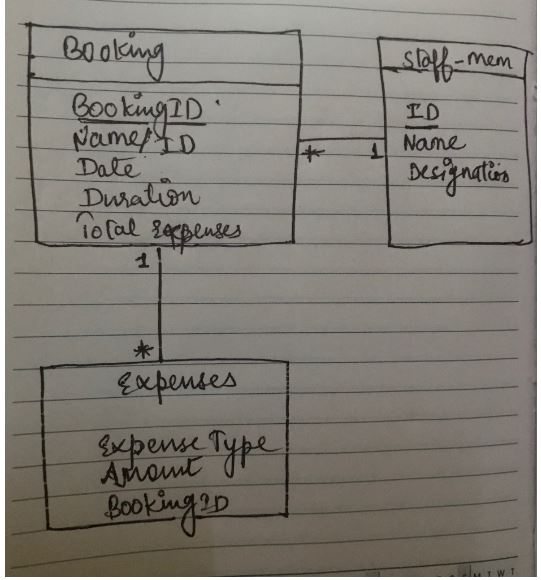 Booking
BookingID
Name/ID
Date
Duration
Total Expenses
*
1
Staff-mem
ID
Name
Designation
1
*
Expenses
Expense Type
Amount
BookingID